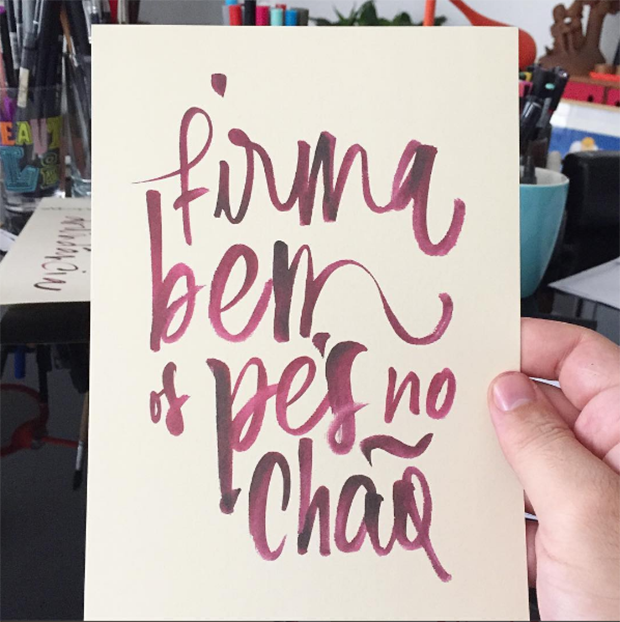 firma
bem
os pés no
chão